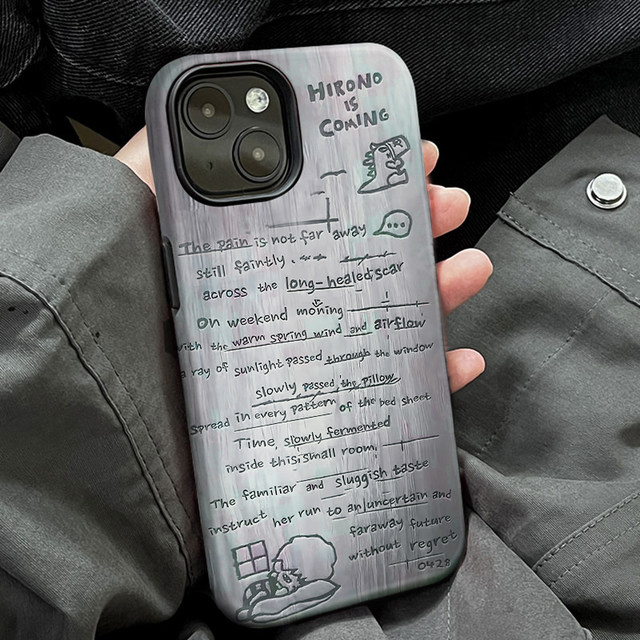 HIRONO
IS
COMING
The pain is not far away
still faintly
across the long-healed scar
On weekend moning
with the warm spring wind and airflow
a ray of sunlight passed through the window
slowly passed the pillow
spread in every pattern of the bed sheet
Time, slowly fermented
inside this small room,
The familiar and sluggish taste
instruct her run to an uncertain and
faraway future
without regret
0428